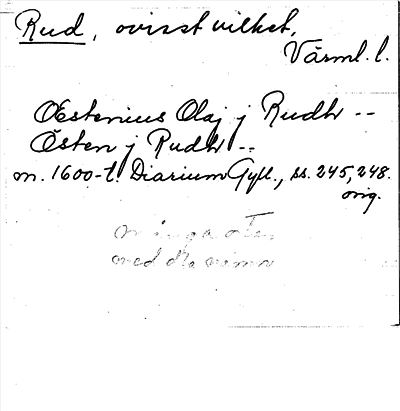 Rud, ovisst vilket,
Värml. l.
Œstenius Olaj j Rudh --
Östen j Rudh --
m. 1600-t. Diarium Gyll., ss. 245, 248.
orig.
många
med d:o namn